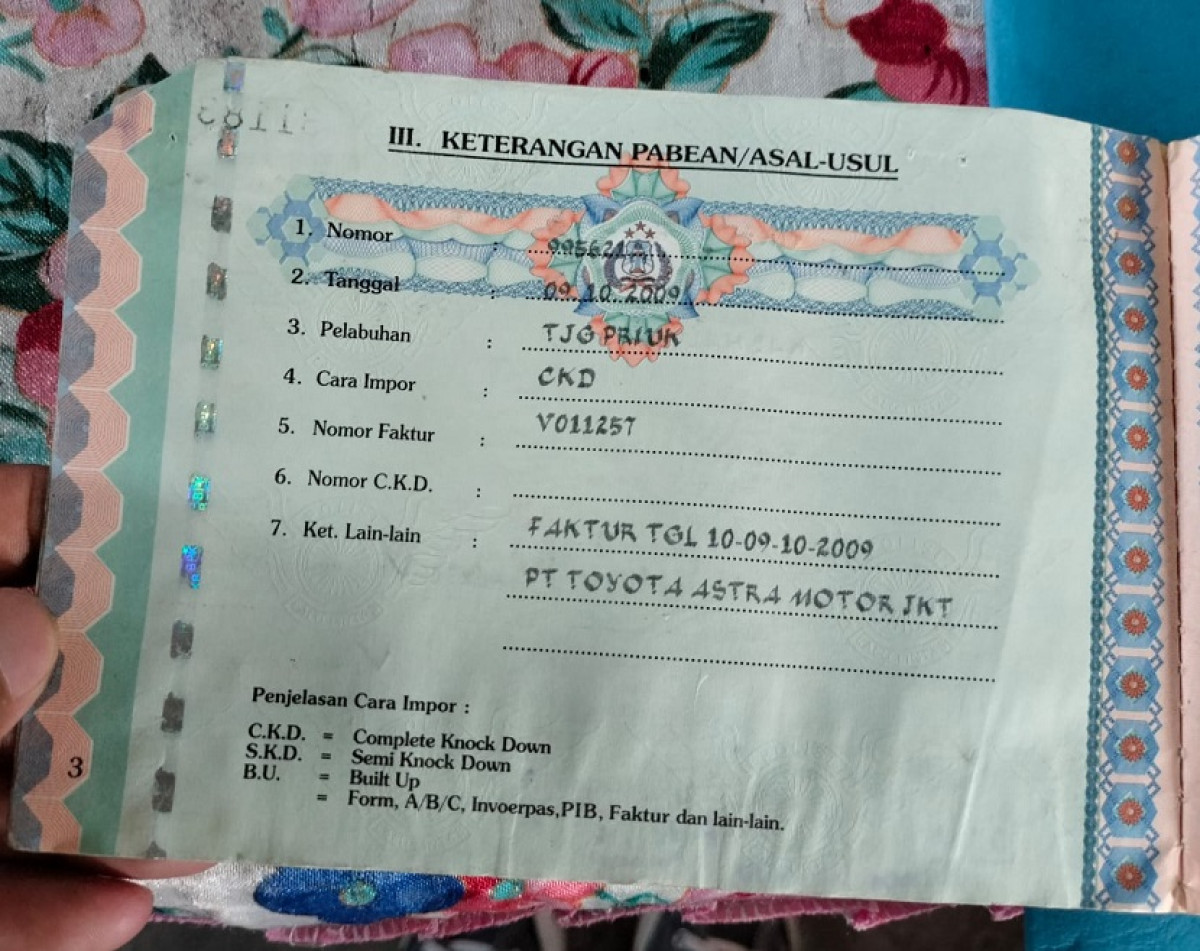 III. KETERANGAN PABEAN/ASAL-USUL
1. Nomor :
2. Tanggal : 09 10 2009
3. Pelabuhan : TJG PRIUK
4. Cara Impor : CKD
5. Nomor Faktur : V011257
6. Nomor C.K.D. :
7. Ket. Lain-lain : FAKTUR TGL 10-09-10-2009
PT TOYOTA ASTRA MOTOR JKT
Penjelasan Cara Impor :
C.K.D. = Complete Knock Down
S.K.D. = Semi Knock Down
B.U. = Built Up
= Form, A/B/C, Invoerpas,PIB, Faktur dan lain-lain.
3